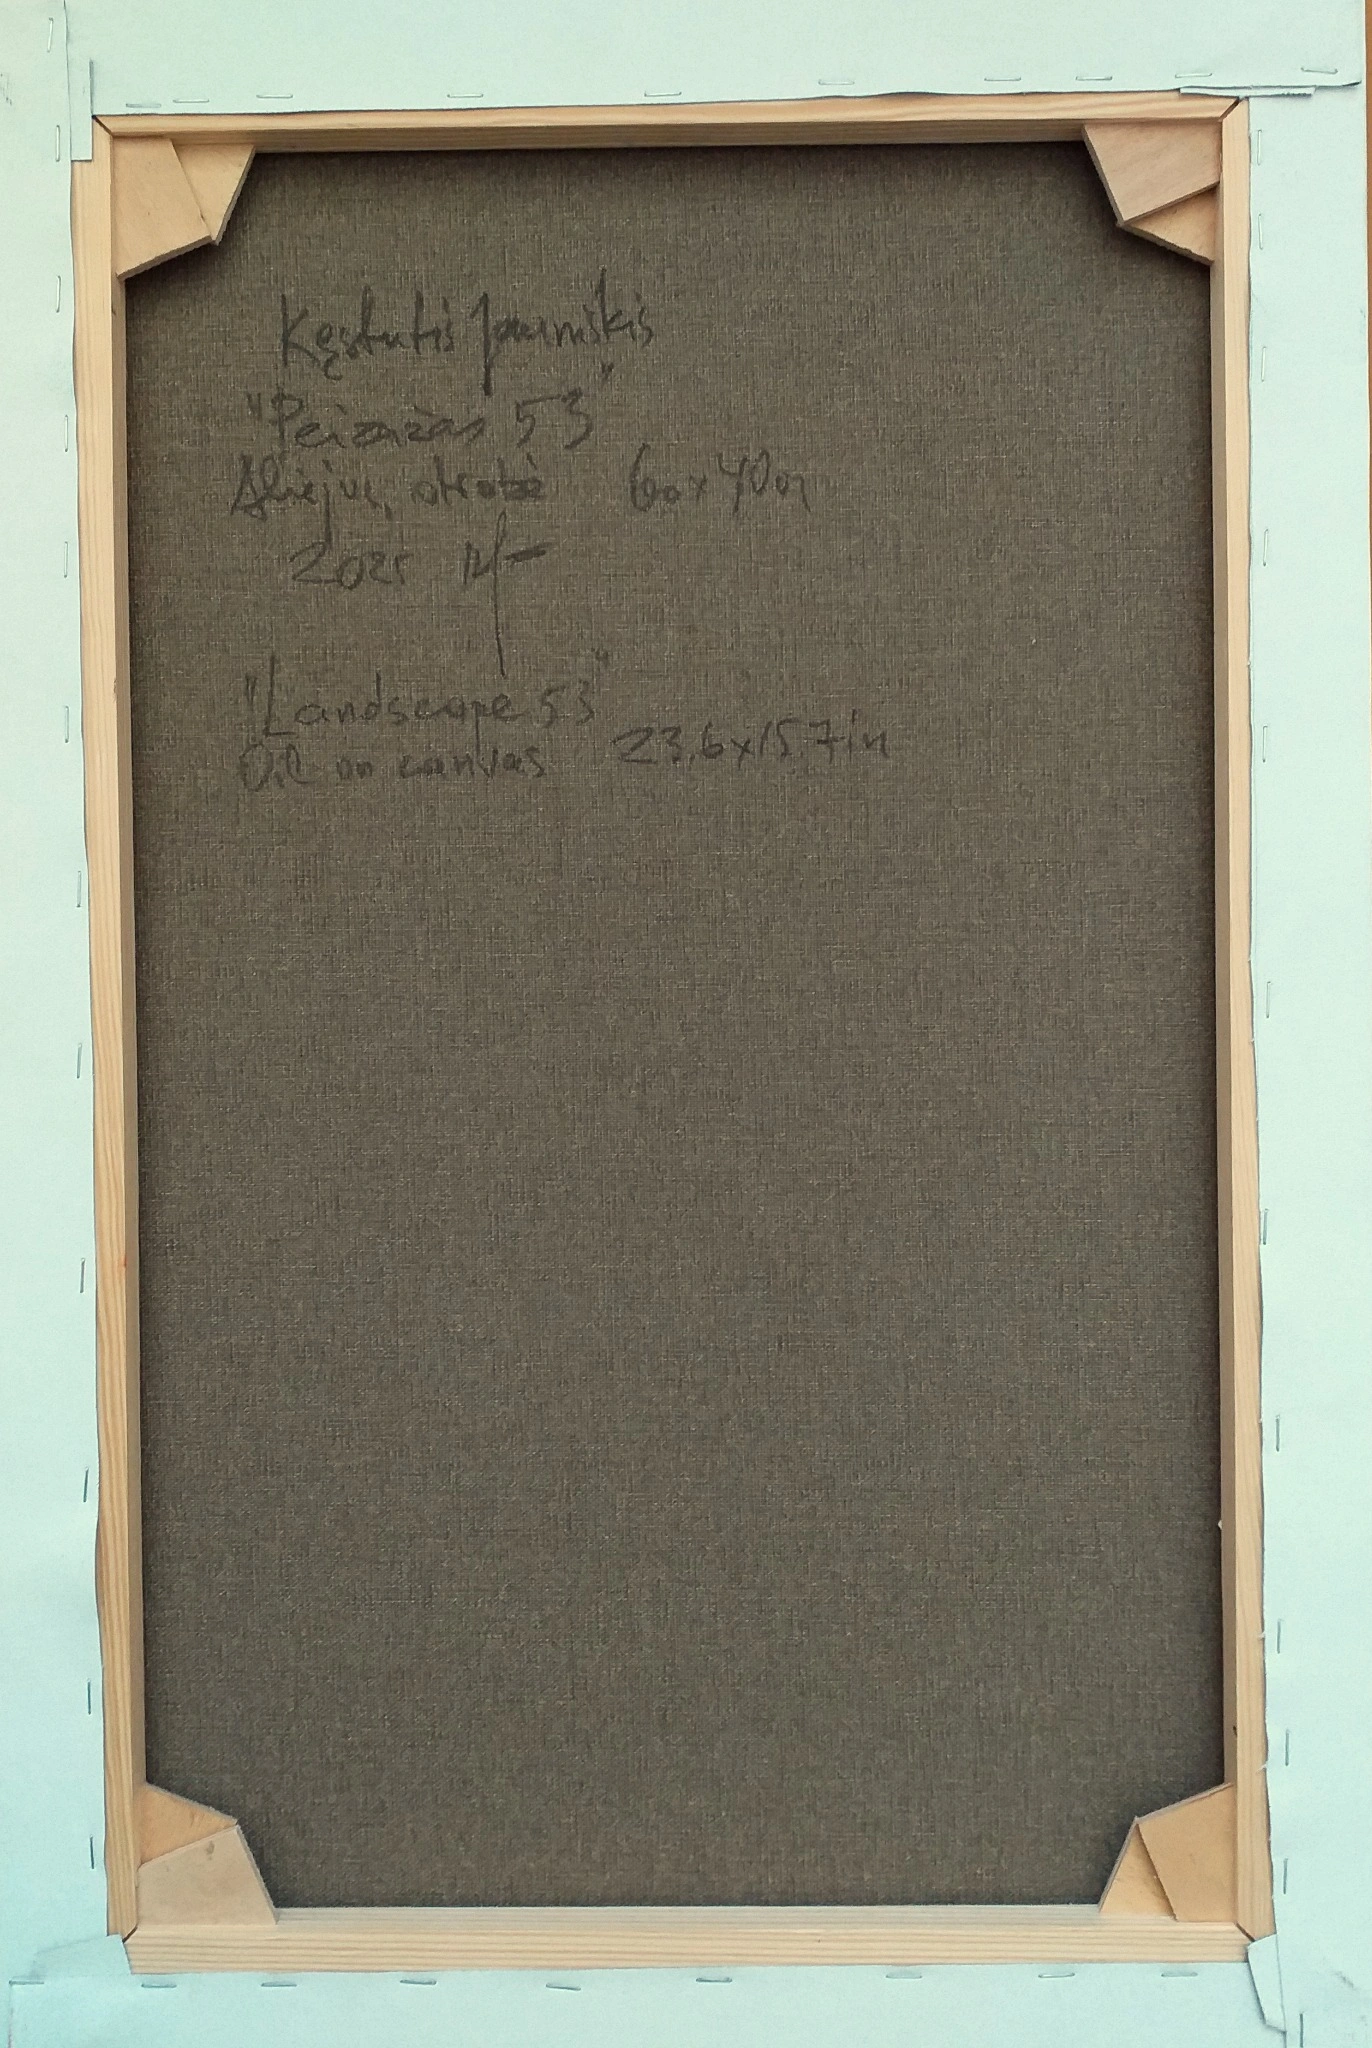 Kęstutis Jauniškis
"Peizažas 53"
Aliejus, drobė 60x40cm
2025
"Landscape 53"
Oil on canvas 23,6x15,7in